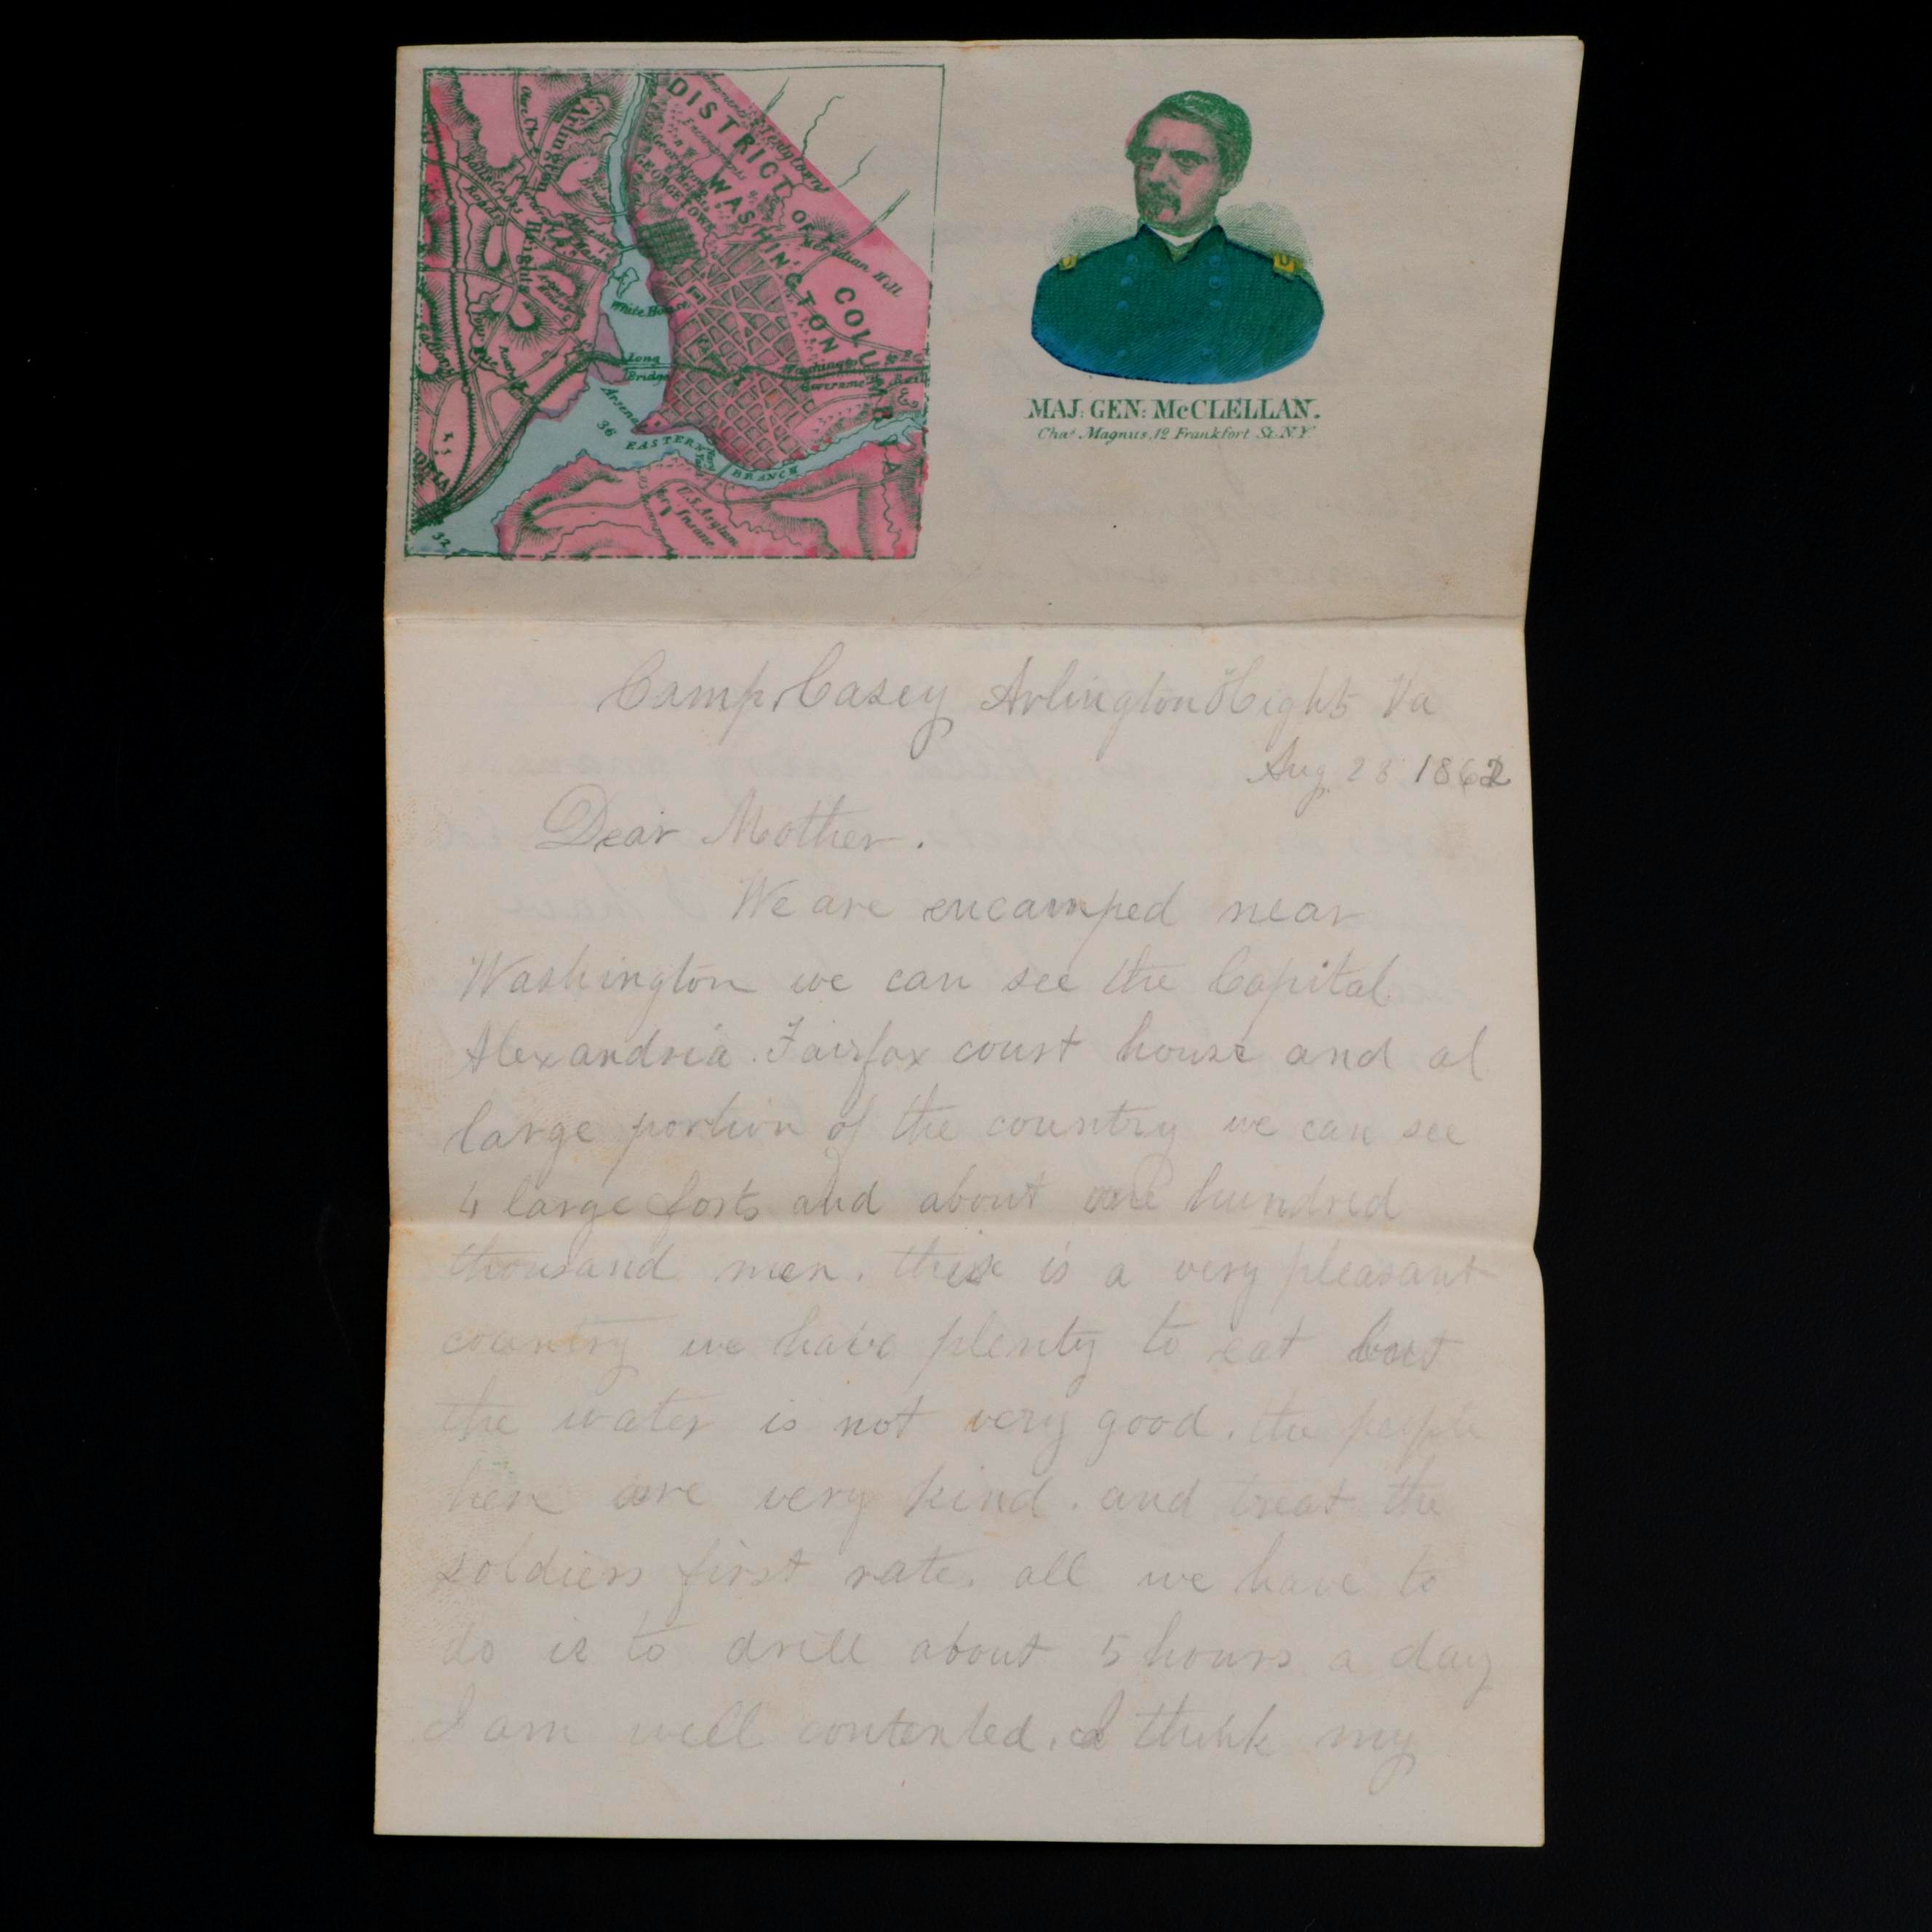 DISTRICT OF COLUMBIA
WASHINGTON
GEORGETOWN
Meridian Hill
Arlington
White House
Long
Bridge
Arsenal
36
EASTERN
BRANCH
Navy
Yard
Washington
Government
U.S. Asylum
Insane
32
MAJ: GEN: McCLELLAN.
Chas. Magnus, 12 Frankfort St. N.Y.
Camp Casey Arlington Hights Va
Aug 28 1862
Dear Mother.
We are encamped near
Washington we can see the Capital
Alexandria. Fairfax court house and al
large portion of the country we can see
4 large forts and about one hundred
thousand men. this is a very pleasant
country we have plenty to eat but
the water is not very good. the people
here are very kind. and treat the
soldiers first rate. all we have to
do is to drill about 5 hours a day
I am well contented. I think my